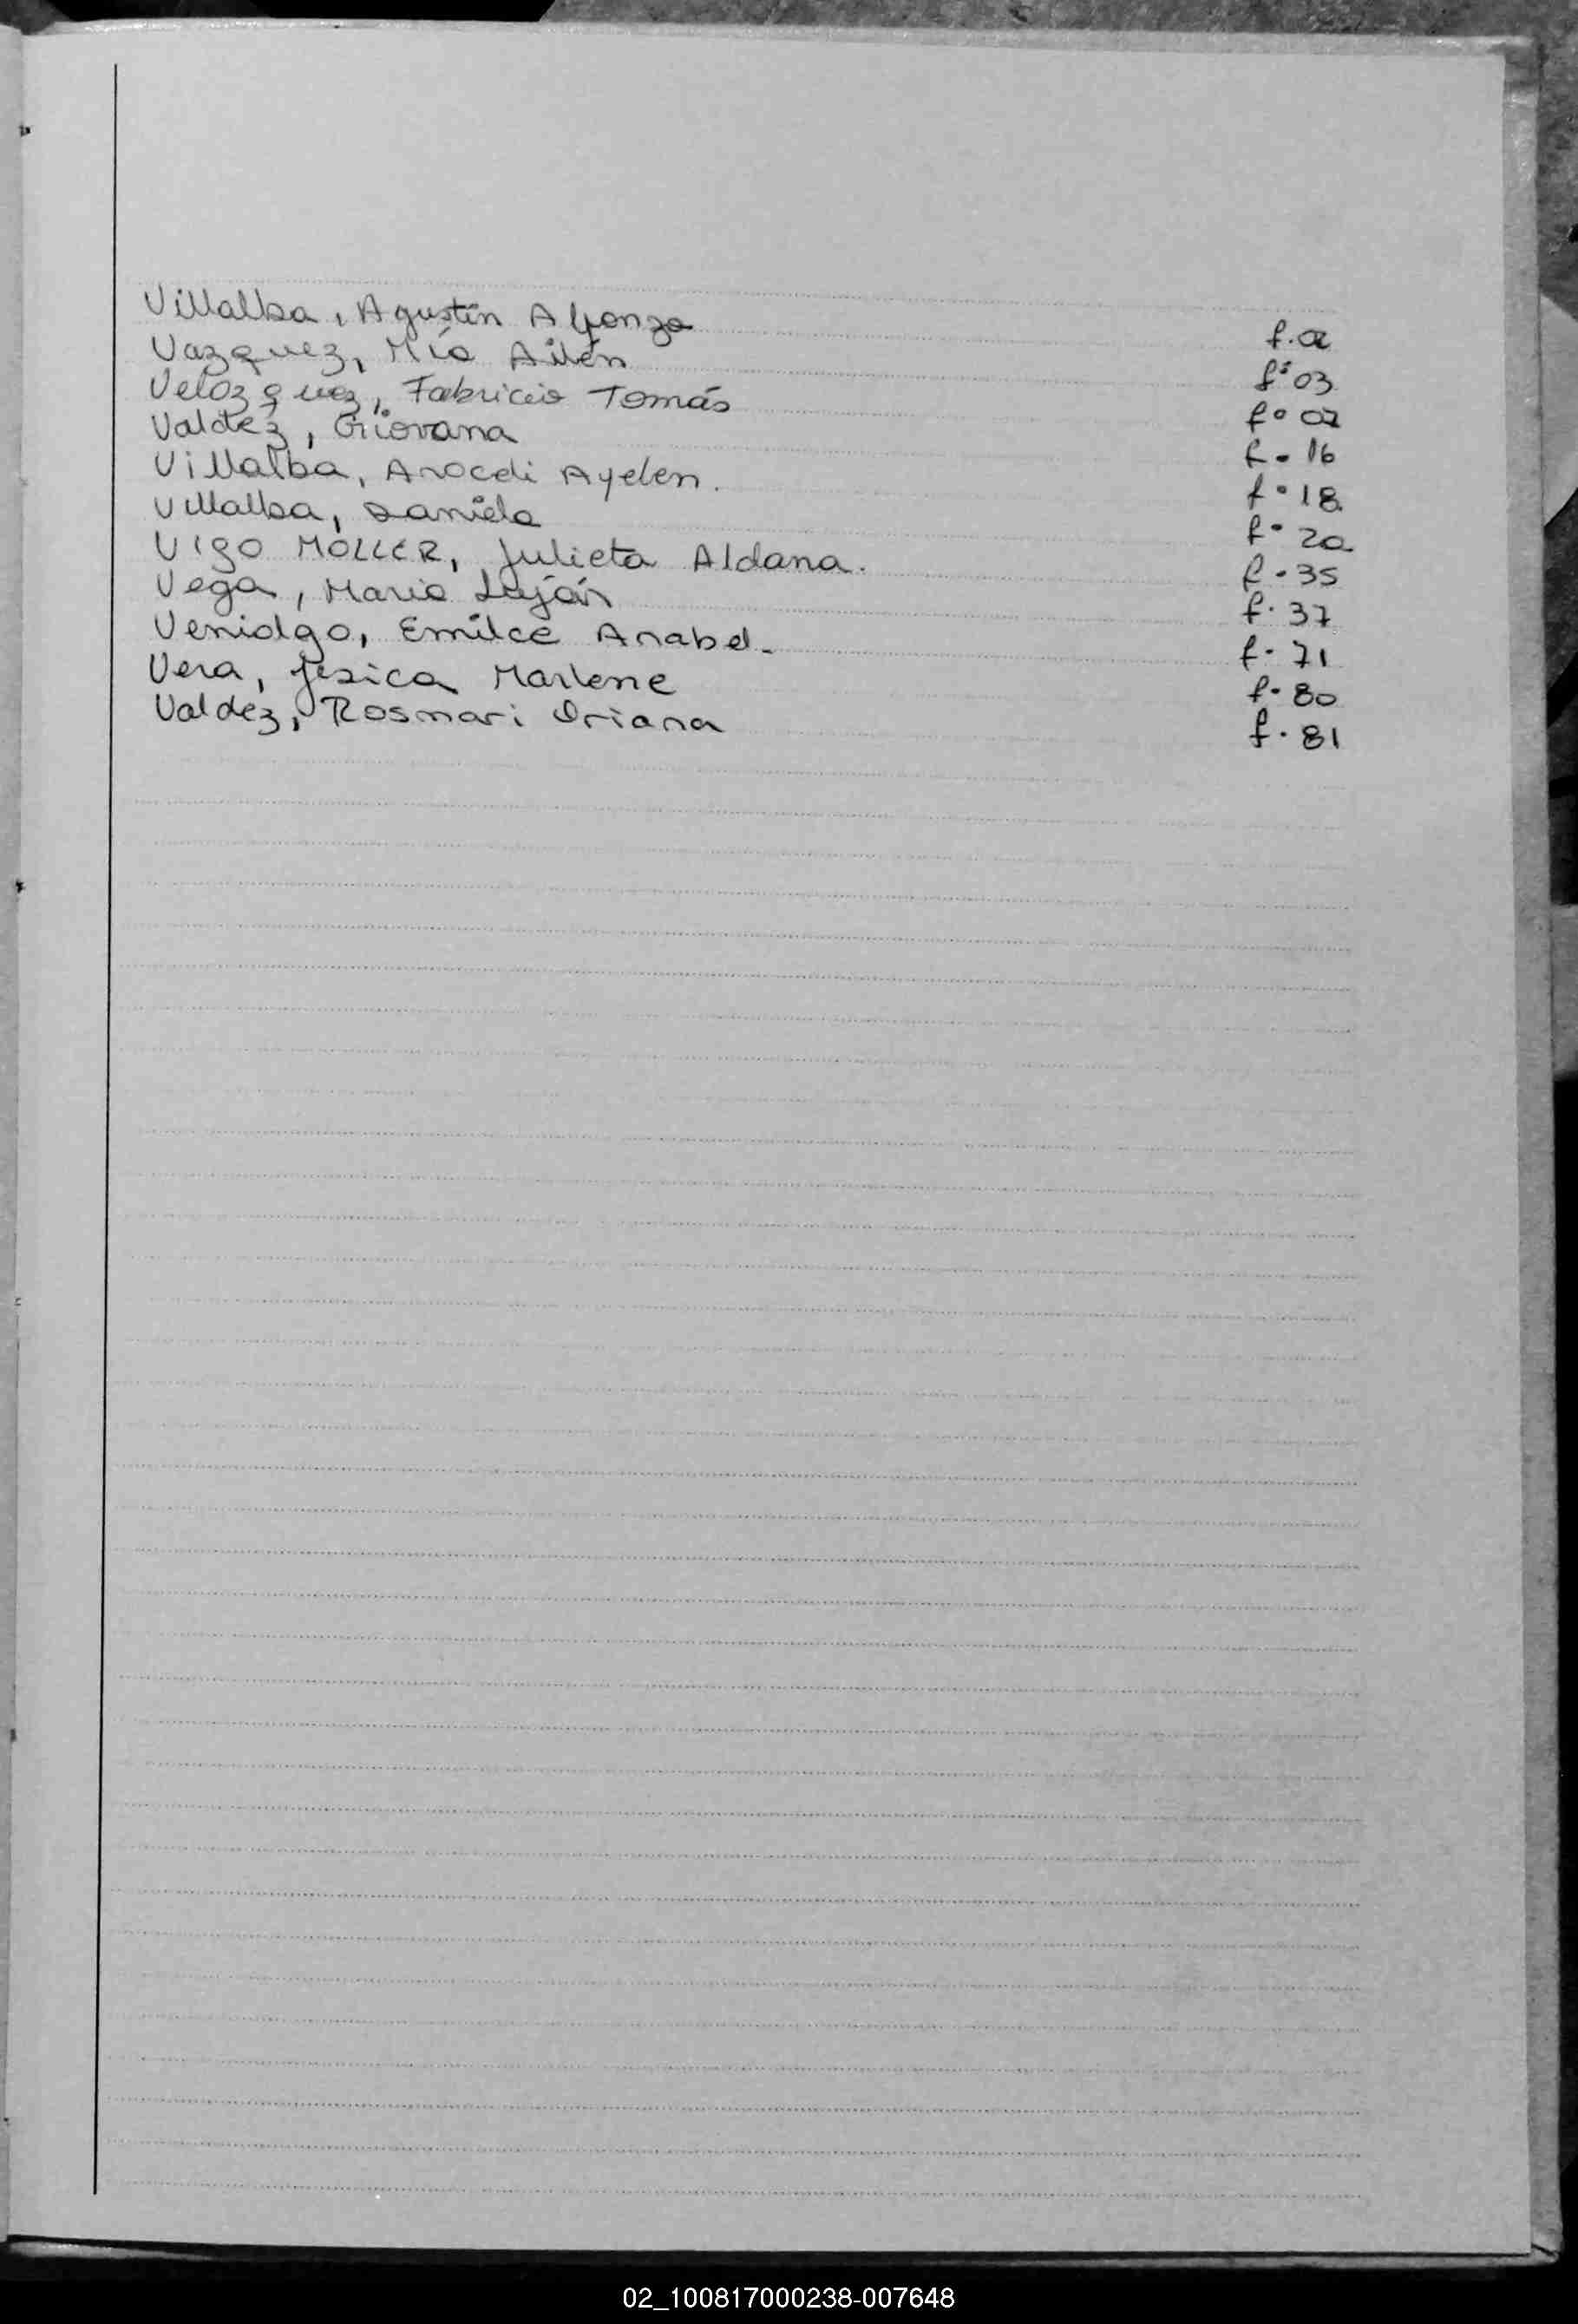 Villalba, Agustín Alfonzo f. 02
Vazquez, Mía Ailén f° 03
Velozquez, Fabricio Tomás f° 07
Valdez, Giovana f. 16
Villalba, Araceli Ayelen. f° 18
Villalba, Daniela f° 20
VIGO MOLLER, Julieta Aldana. f. 35
Vega, Maria Luján f. 37
Venialgo, Emilce Anabel. f. 71
Vera, Jesica Marlene f. 80
Valdez, Rosmari Oriana f. 81
02_100817000238-007648